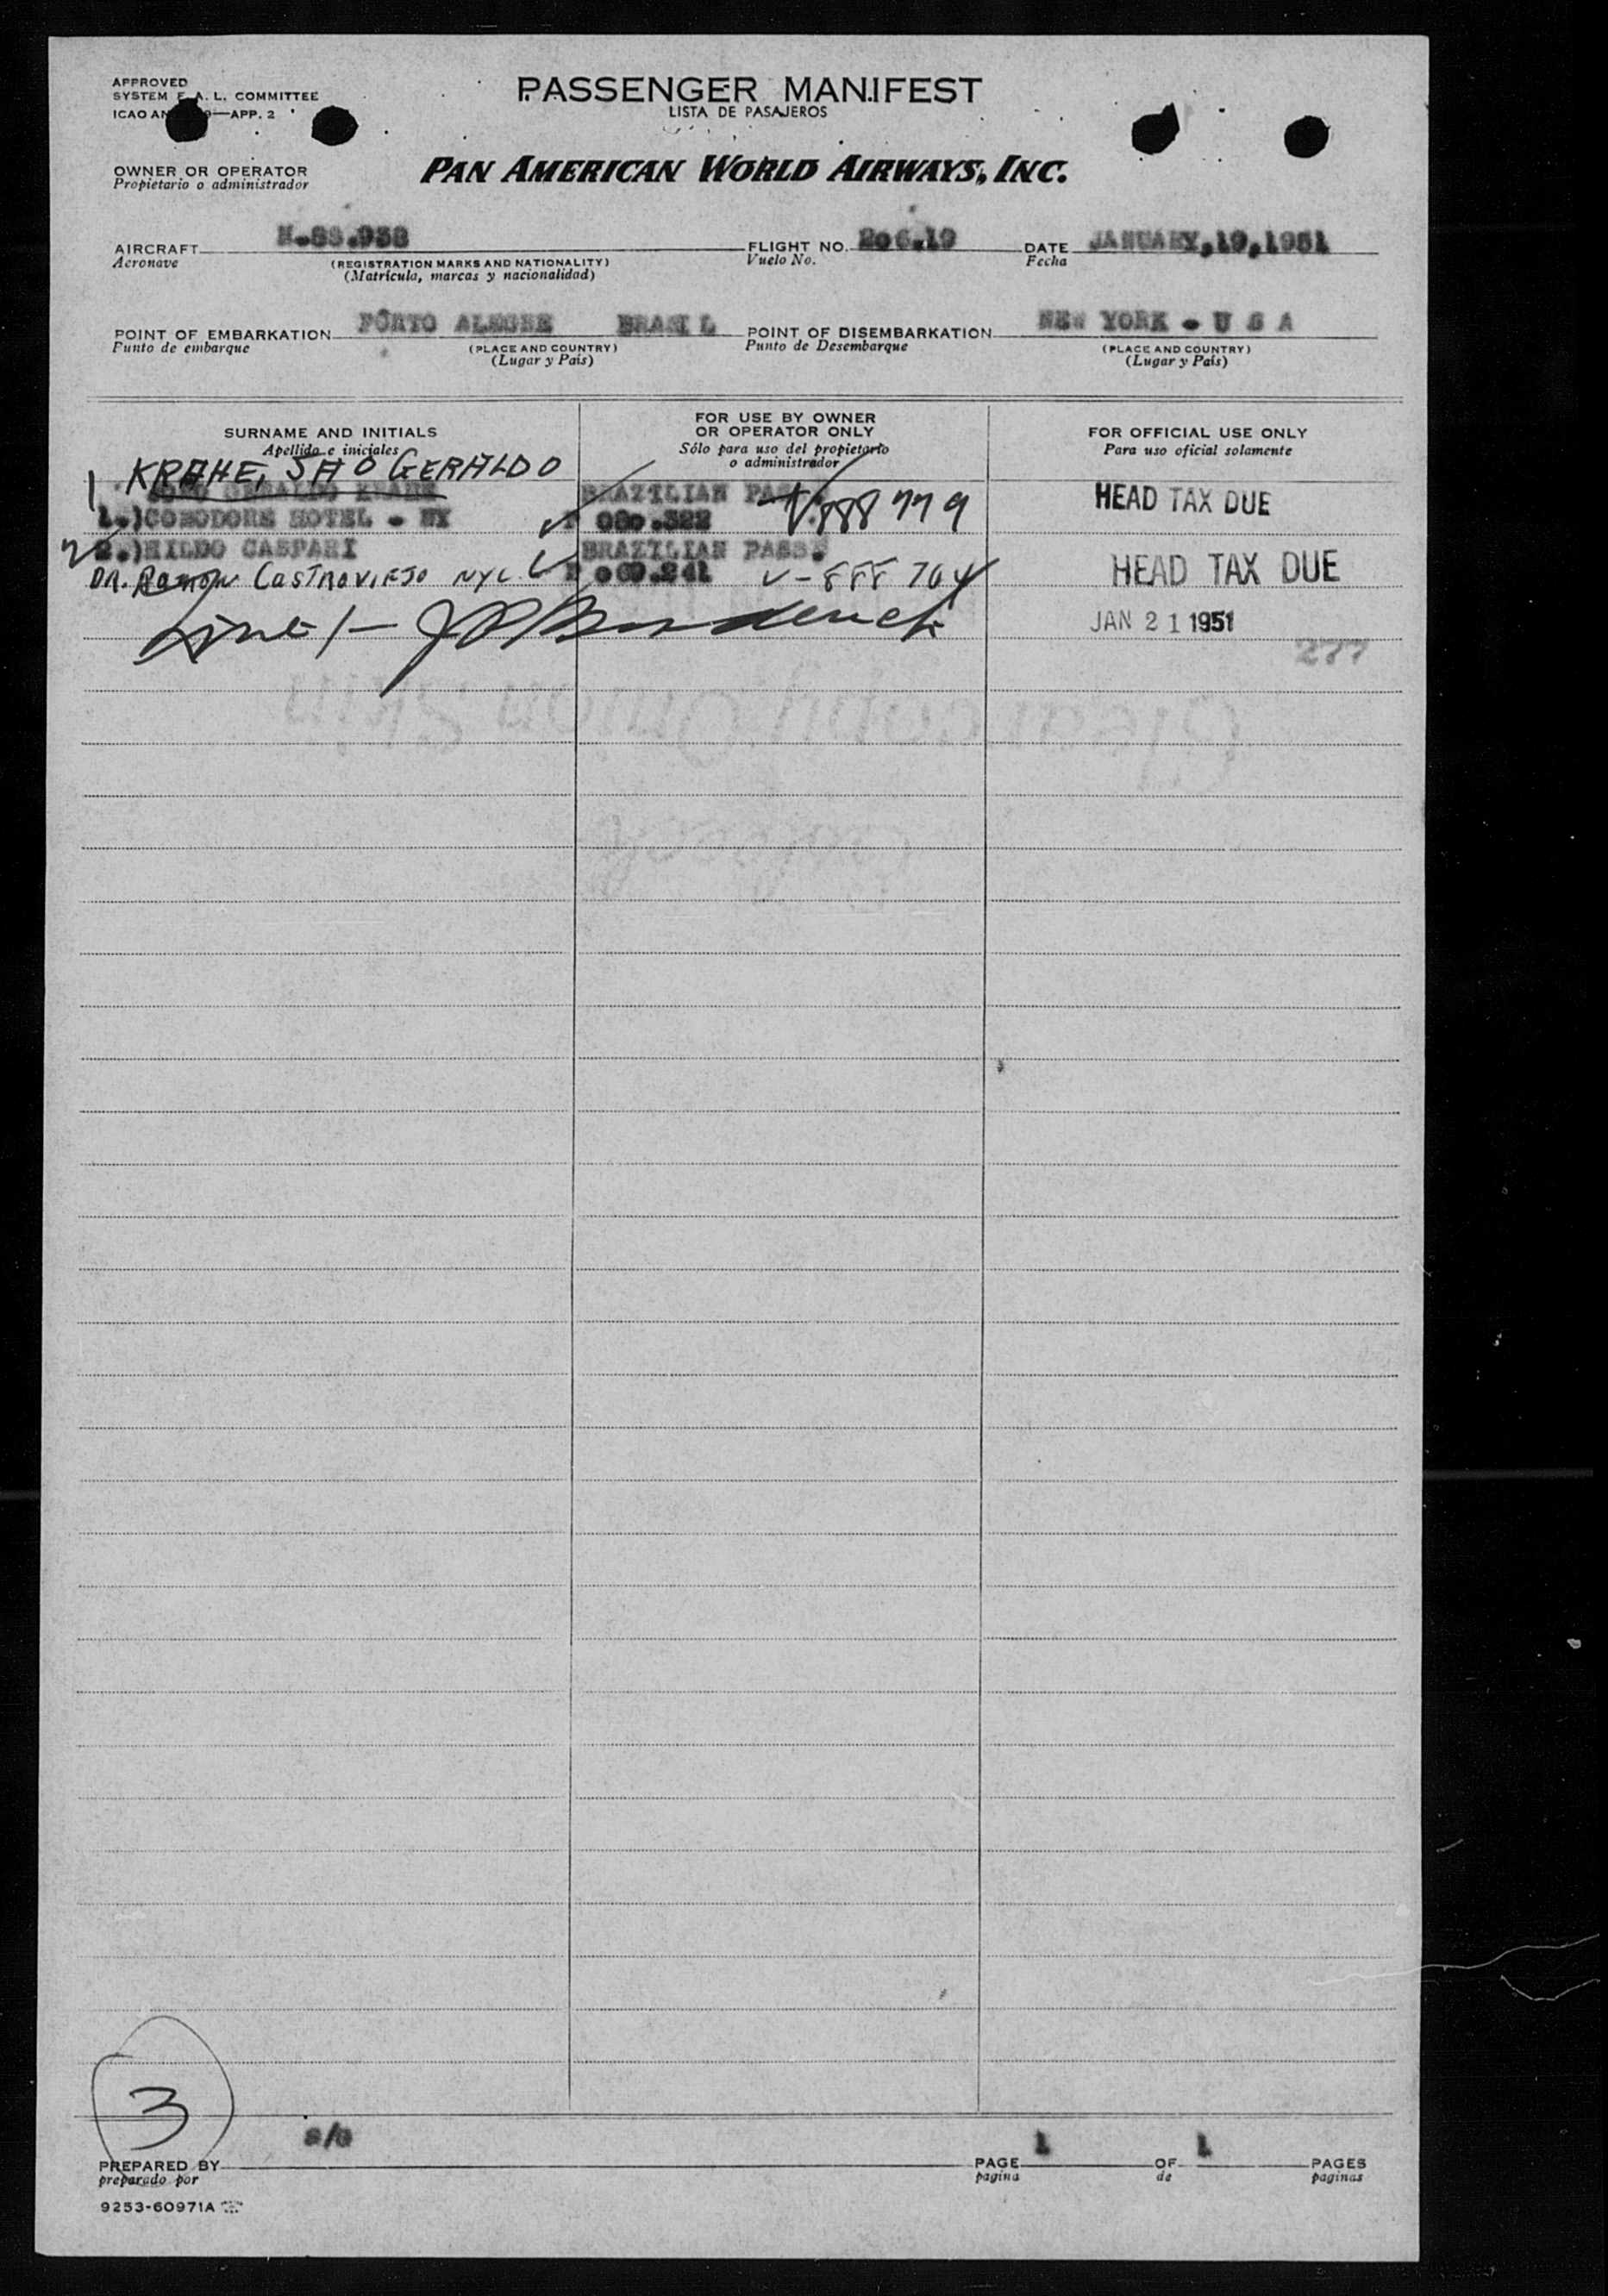 APPROVED
SYSTEM F. A. L. COMMITTEE
ICAO AN 9—APP. 2
PASSENGER MANIFEST
LISTA DE PASAJEROS
OWNER OR OPERATOR
Propietario o administrador
PAN AMERICAN WORLD AIRWAYS, INC.
AIRCRAFT N.88.938 FLIGHT NO. 206.19 DATE JANUARY,19,1951
Aeronave (REGISTRATION MARKS AND NATIONALITY) Vuelo No. Fecha
(Matrícula, marcas y nacionalidad)
POINT OF EMBARKATION PÔRTO ALEGRE BRASIL POINT OF DISEMBARKATION NEW YORK - U S A
Punto de embarque (PLACE AND COUNTRY) Punto de Desembarque (PLACE AND COUNTRY)
(Lugar y País) (Lugar y País)
SURNAME AND INITIALS FOR USE BY OWNER OR OPERATOR ONLY FOR OFFICIAL USE ONLY
Apellido e iniciales Sólo para uso del propietario o administrador Para uso oficial solamente
KRAHE, JAO GERALDO
1 GERALDO KRAHE BRAZILIAN PAS V888779 HEAD TAX DUE
1.)COMODORE HOTEL - NY 080.322
2 2.)HILDO CASPARI BRAZILIAN PASS. HEAD TAX DUE
DR. Ramon Castroviejo NYC. 069.241 V-888704
JAN 21 1951
277
3
s/o
PREPARED BY PAGE 1 OF 1 PAGES
preparado por pagina de paginas
9253-60971A